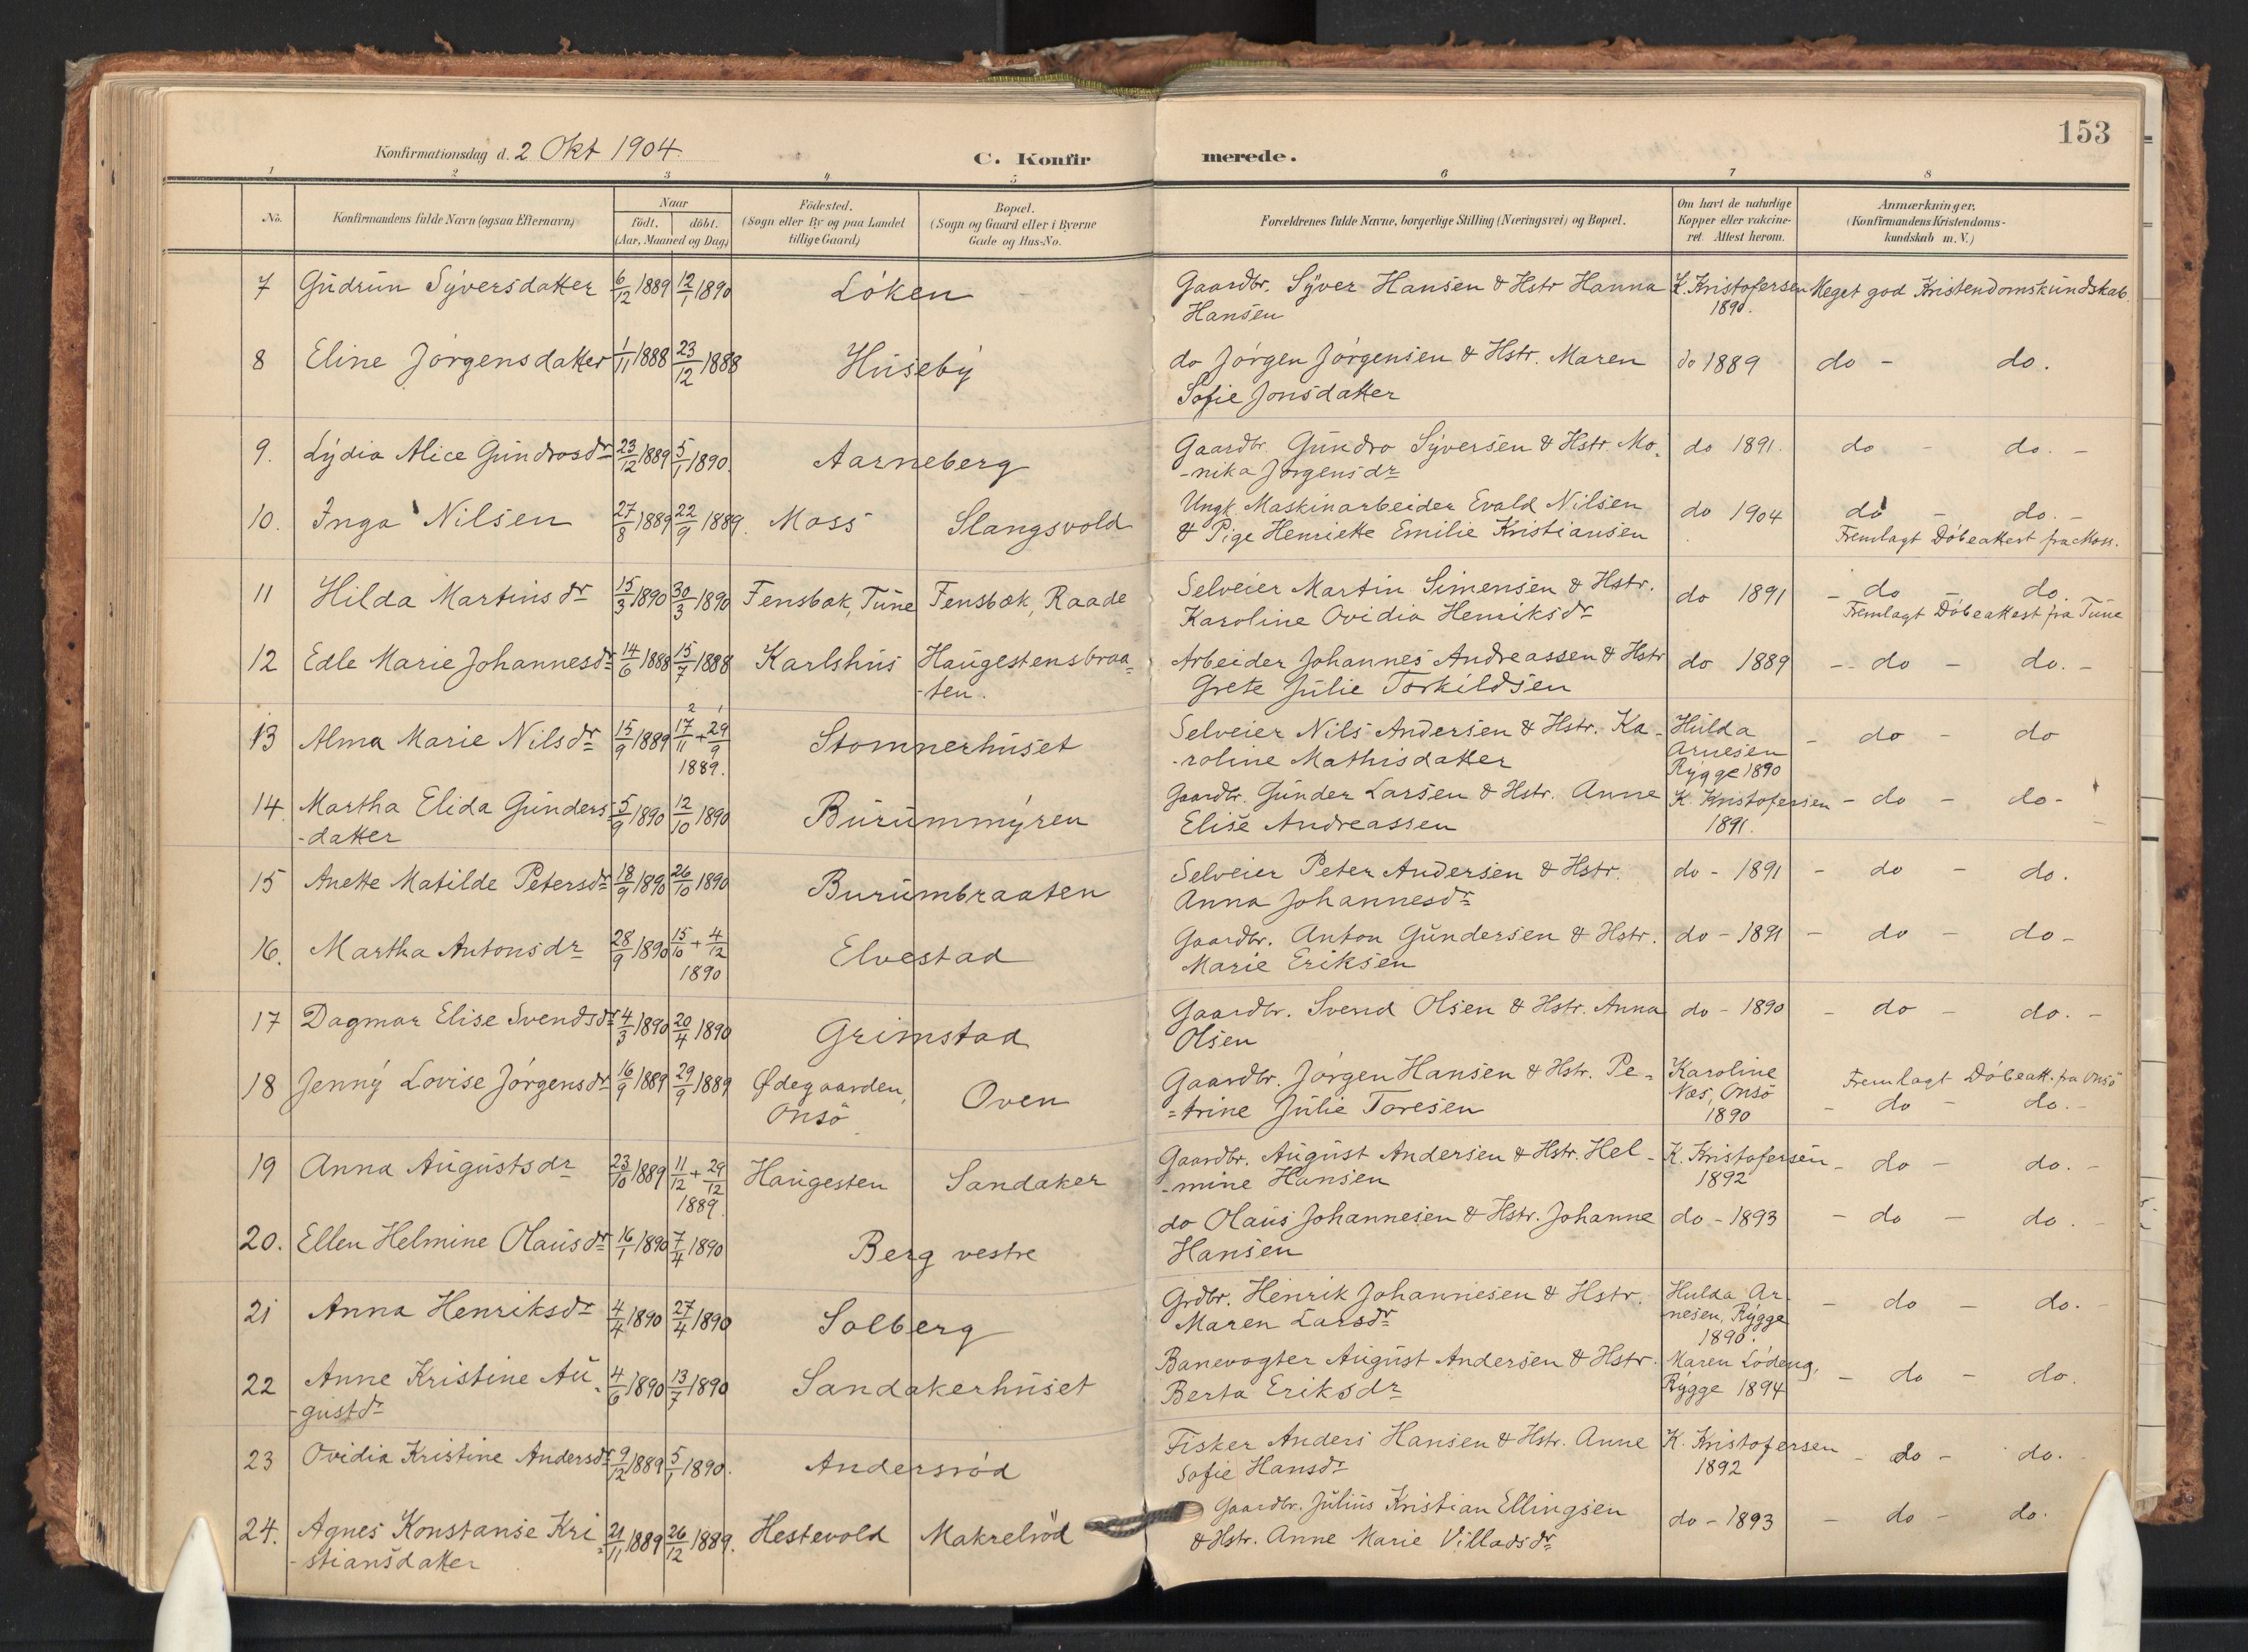 153
Konfirmationsdag d. 2 Okt 1904.
C. Konfir merede.
1 2 3 4 5 6 7 8
No. Konfirmandens fulde Navn (ogsaa Efternavn) Naar födt. döbt. (Aar, Maaned og Dag) Födested. (Sogn eller By og paa Landet tillige Gaard) Bopæl. (Sogn og Gaard eller i Byerne Gade og Hus-No. Forældrenes fulde Navne, borgerlige Stilling (Næringsvei) og Bopæl. Om havt de naturlige Kopper eller vakcineret. Attest herom. Anmærkninger. (Konfirmandens Kristendomskundskab m. V.)
7 Gudrun Syversdatter 6/12 1889 12/1 1890 Löken Gaardbr. Syver Hansen & Hstr Hanna K. Kristofersen Meget god Kristendomskundskab.
Hansen 1890.
8 Eline Jörgensdatter 1/11 1888 23/12 1888 Huseby do Jörgen Jörgensen & Hstr. Maren do 1889 do - do.
Sofie Jonsdatter
9. Lydia Alice Gundrosdr 23/12 1889 5/1 1890. Aarneberg Gaardbr. Gundro Syversen & Hstr. Mo- do 1891. do - do. -
-nika Jörgensdr
10. Inga Nilsen 27/8 1889 22/9 1889. Moss Slangsvold Ungk. Maskinarbeider Evald Nilsen do 1904 do - do. -
& Pige Henriette Emilie Kristiansen Fremlagt Döbeattest fra Moss.
11 Hilda Martinsdr 15/3 1890 30/3 1890 Fensbak, Tune Fensbak, Raade Selveier Martin Simensen & Hstr. do 1891 - do - do.
Karoline Ovidia Henriksdr Fremlagt Döbeattest fra Tune
12 Edle Marie Johannesdr 14/6 1888 15/7 1888 Karlshus Haugestensbraa- Arbeider Johannes Andreassen & Hstr do 1889 - do - do. -
-ten. Grete Julie Torkildsen
13 Alma Marie Nilsdr 15/9 1889 2 17/11 + 1 29/9 1889. Stomnerhuset Selveier Nils Andersen & Hstr. Ka- Hulda - do - do
-roline Mathisdatter Arnesen
Rygge 1890
14. Martha Elida Gunders- 5/9 1890 12/10 1890 Burummyren Gaardbr. Gunder Larsen & Hstr. Anne K. Kristofersen - do - do -
-datter Elise Andreassen 1891.
15 Anette Matilde Petersdr 18/9 1890 26/10 1890 Burumbraaten Selveier Peter Andersen & Hstr. do - 1891 - do - do.
Anna Johannesdr
16. Martha Antonsdr 28/9 1890 15/10 + 4/12 1890 Elvestad Gaardbr. Anton Gundersen & Hstr. do - 1891 - do - do -
Marie Eriksen
17 Dagmar Elise Svendsdr 4/3 1890 20/4 1890 Grimstad Gaardbr. Svend Olsen & Hstr. Anna do - 1890 - do - do. -
Olsen
18 Jenny Lovise Jörgensdr 16/9 1889 29/9 1889 Ødegaarden, Oven Gaardbr. Jörgen Hansen & Hstr. Pe- Karoline Fremlagt Döbeatt. fra Onsö
Onsö =trine Julie Toresen Næs, Onsö - do - do. -
1890
19 Anna Augustsdr 23/10 1889 11/12 + 29/12 1889. Haugesten Sandaker Gaardbr. August Andersen & Hstr. Hel- K. Kristofersen - do - do. -
-mine Hansen 1892
20. Ellen Helmine Olausdr 16/1 1890 7/4 1890 Berg vestre do Olaus Johannesen & Hstr. Johanne do - 1893 - do - do. -
Hansen
21 Anna Henriksdr 4/4 1890 27/4 1890 Solberg Grdbr. Henrik Johannesen & Hstr. Hulda Ar- - do - do. -
Maren Larsdr nesen, Rygge
1890.
22 Anne Kristine Au- 4/6 1890 13/7 1890 Sandakerhuset Banevogter August Andersen & Hstr. Maren Lödeng, - do - do.
-gustdr Berta Eriksdr Rygge 1894
23 Ovidia Kristine Andersdr 9/12 1889 5/1 1890. Andersröd Fisker Anders Hansen & Hstr. Anne K. Kristofersen - do - do.
Sofie Hansdr 1892
24. Agnes Konstanse Kri- 21/11 1889 26/12 1889. Hestevold Makrelröd Gaardbr. Julius Kristian Ellingsen do - 1893 - do - do.
-stiansdatter & Hstr. Anne Marie Villadsdr